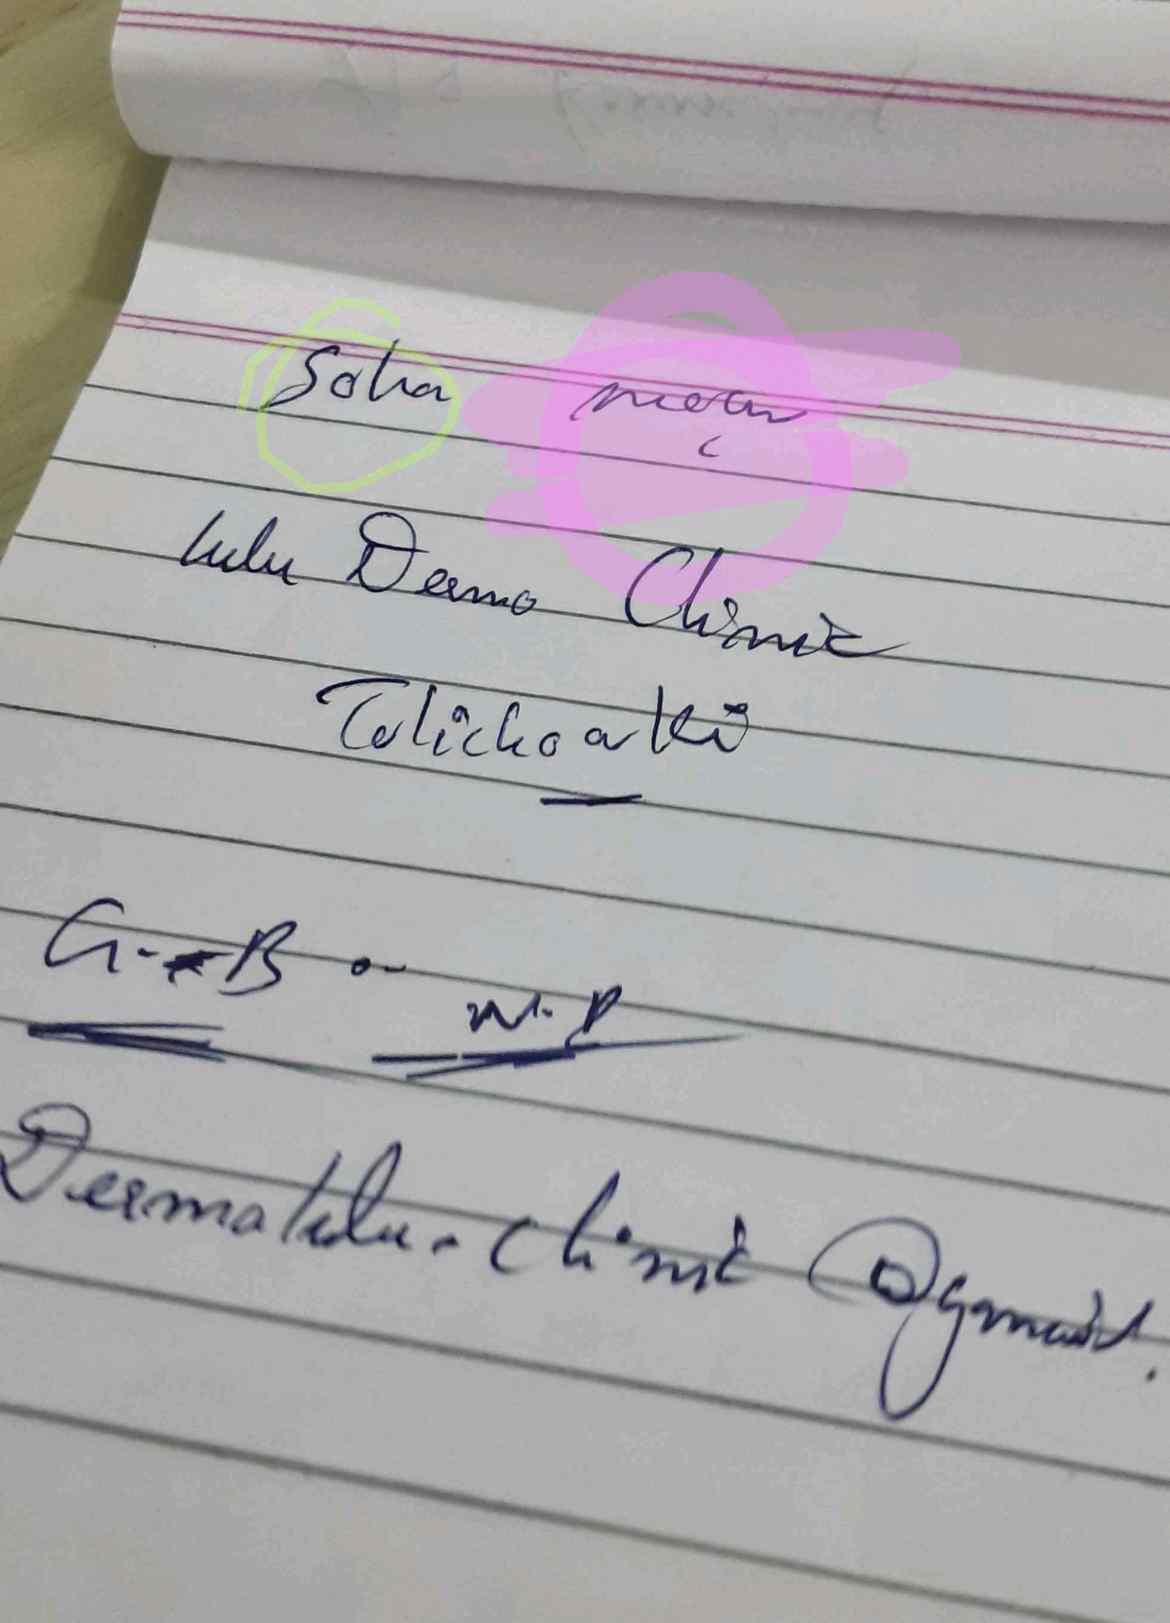 Soha
Lulu Dermo Clinic
Tolichoaki
G-B
N.P
Dermalulu.Clinic @gmail.